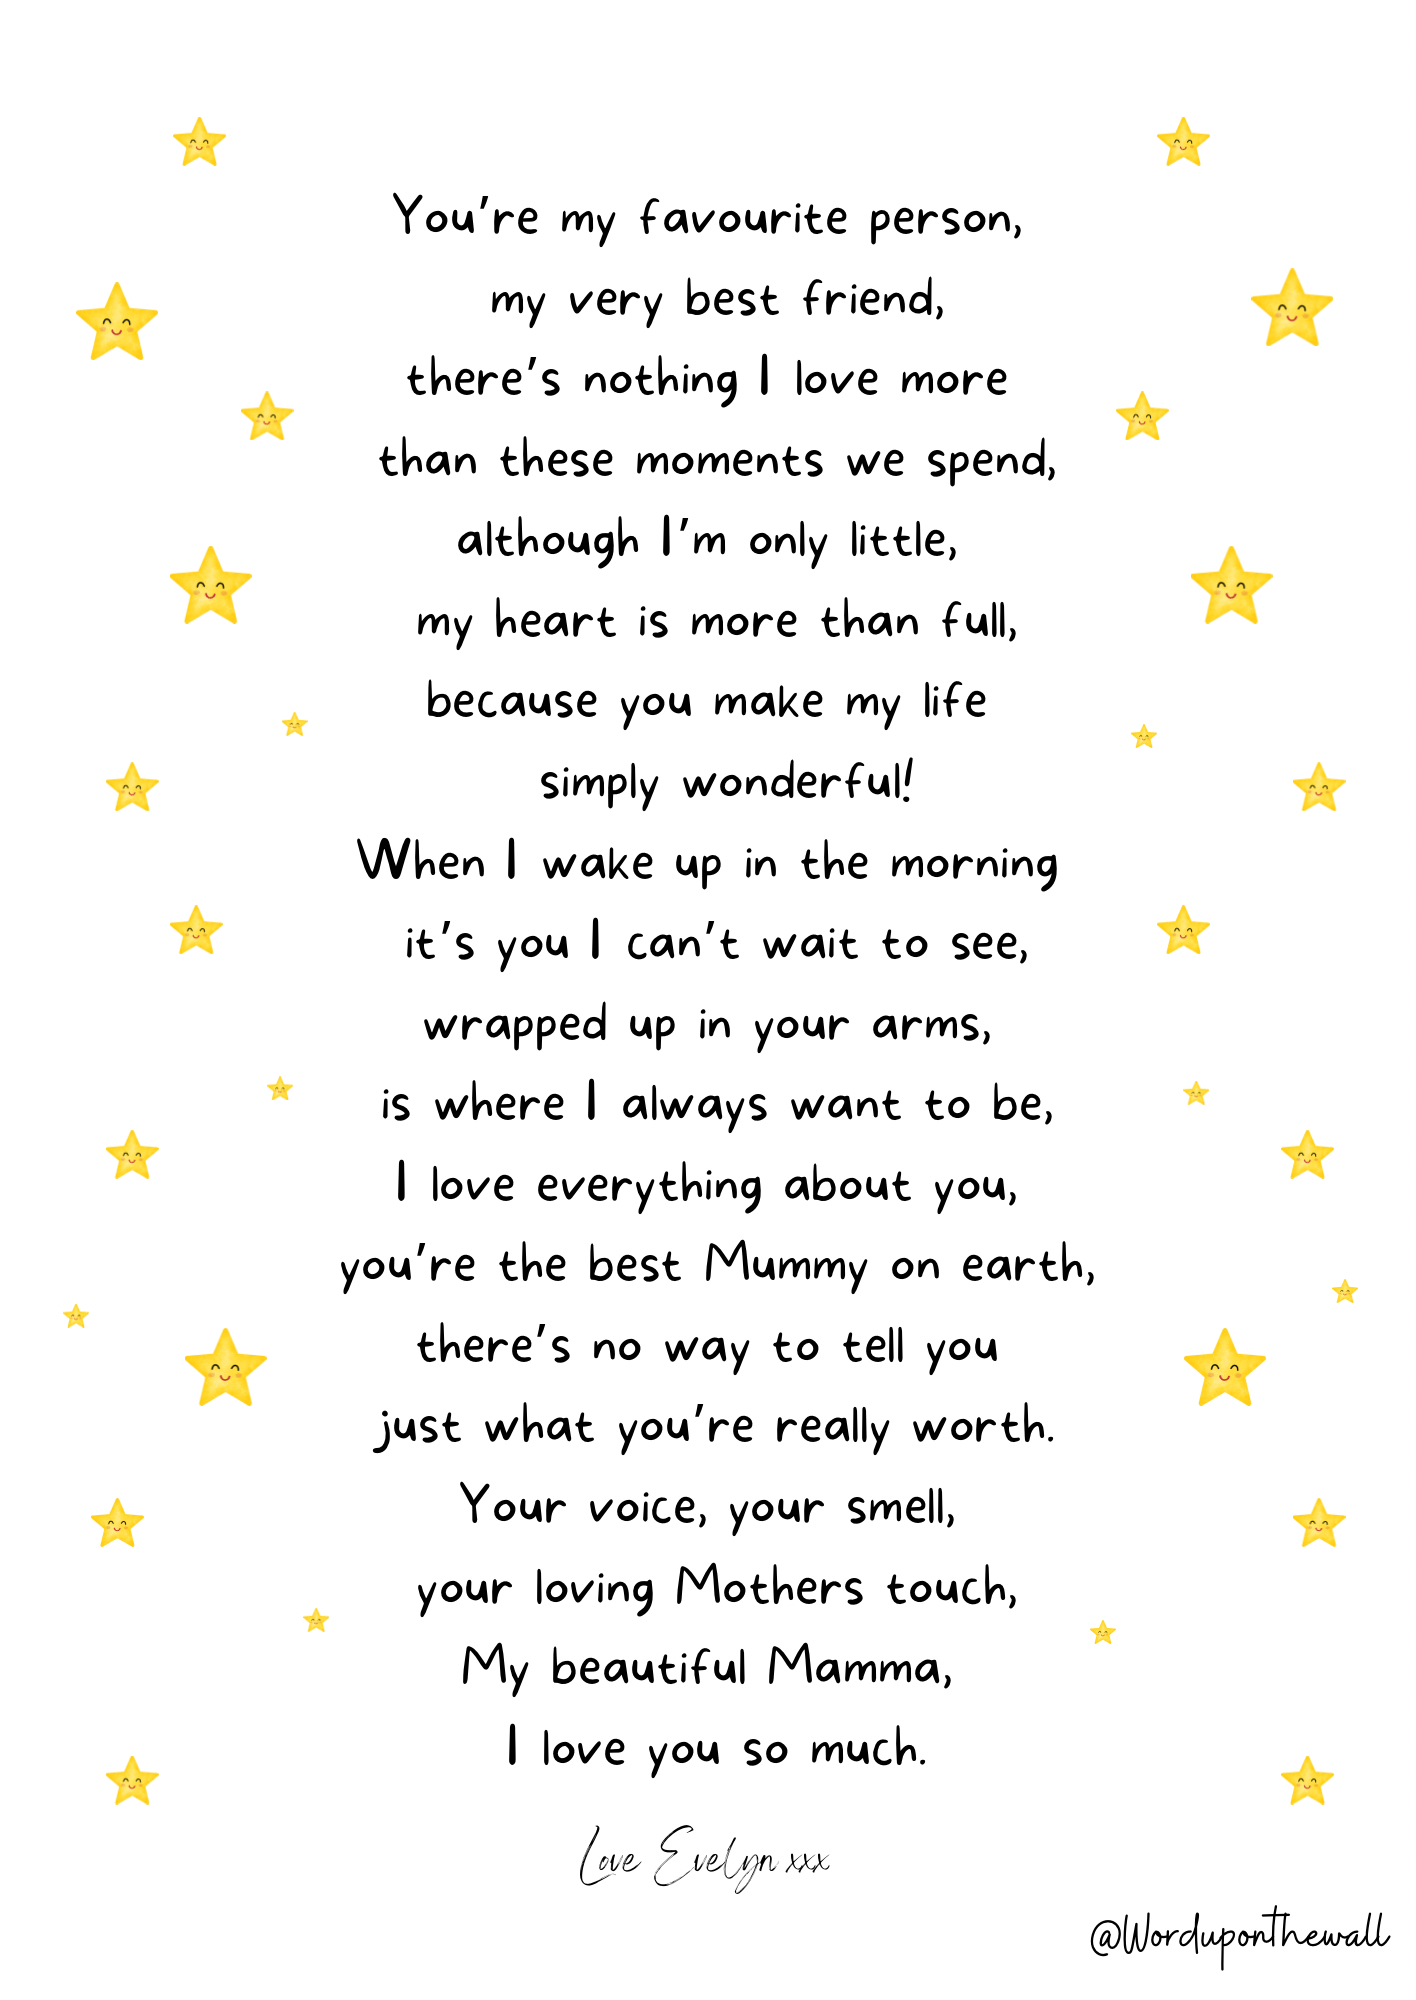 You're my favourite person,
my very best friend,
there's nothing I love more
than these moments we spend,
although I'm only little,
my heart is more than full,
because you make my life
simply wonderful!
When I wake up in the morning
it's you I can't wait to see,
wrapped up in your arms,
is where I always want to be,
I love everything about you,
you're the best Mummy on earth,
there's no way to tell you
just what you're really worth.
Your voice, your smell,
your loving Mothers touch,
My beautiful Mamma,
I love you so much.
Love Evelyn xxx
@Worduponthewall